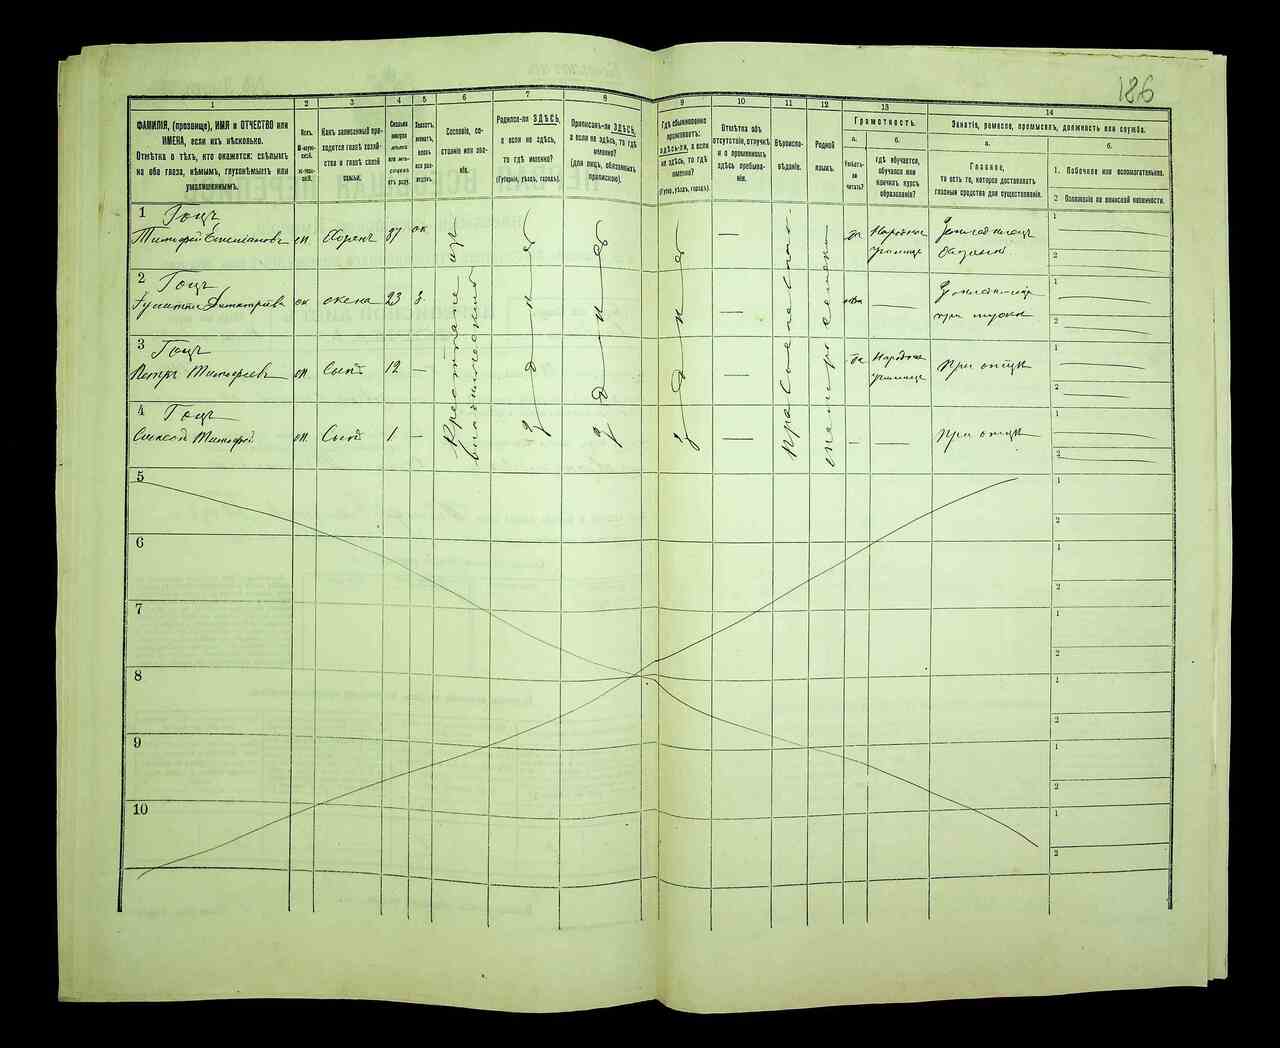 186
1 2 3 4 5 6 7 8 9 10 11 12 13 14
ФАМИЛІЯ, (прозвище), ИМЯ и ОТЧЕСТВО или
ИМЕНА, если ихъ нѣсколько.
Отмѣтка о тѣхъ, кто окажется: слѣпымъ
на оба глаза, нѣмымъ, глухонѣмымъ или
умалишеннымъ.
Полъ.
М-мужской.
Ж-женской.
Какъ записанный приходится
главѣ хозяйства
и главѣ своей
семьи.
Сколько
минуло
лѣтъ
или мѣсяцевъ
отъ роду.
Холостъ,
женатъ,
вдовъ
или разведенъ.
Сословіе, состояніе
или званіе.
Родился-ли ЗДѢСЬ,
а если не здѣсь,
то гдѣ именно?
(Губернія, уѣздъ, городъ).
Приписанъ-ли ЗДѢСЬ,
а если не здѣсь, то гдѣ
именно?
(для лицъ, обязанныхъ
припискою).
Гдѣ обыкновенно
проживаетъ:
здѣсь-ли, а если
не здѣсь, то гдѣ
именно?
(Губер., уѣздъ, городъ).
Отмѣтка объ
отсутствіи, отлучкѣ
и о временномъ
здѣсь пребываніи.
Вѣроисповѣданіе.
Родной
языкъ.
Грамотность.
а.
Умѣетъ-ли
читать?
б.
гдѣ обучается,
обучался или
кончилъ курсъ
образованія?
Занятіе, ремесло, промыселъ, должность или служба.
а.
Главное,
то есть то, которое доставляетъ
главныя средства для существованія.
б.
1. Побочное или вспомогательное.
2 Положеніе по воинской повинности.
1 Гоцъ
Тимофей Емельяновъ
37
да
Народное
училище
1
2
2 Гоцъ
жена 23
1
2
3 Гоцъ
Петръ Тимофеевъ
Сынъ 12 —
да
Народное
училище
При отцѣ
1
2
4 Гоцъ
Сынъ 1 —
При отцѣ
1
2
Крестьяне изъ
Здѣсь
Здѣсь
Здѣсь
Православное
5 1
2
6 1
2
7 1
2
8 1
2
9 1
2
10 1
2